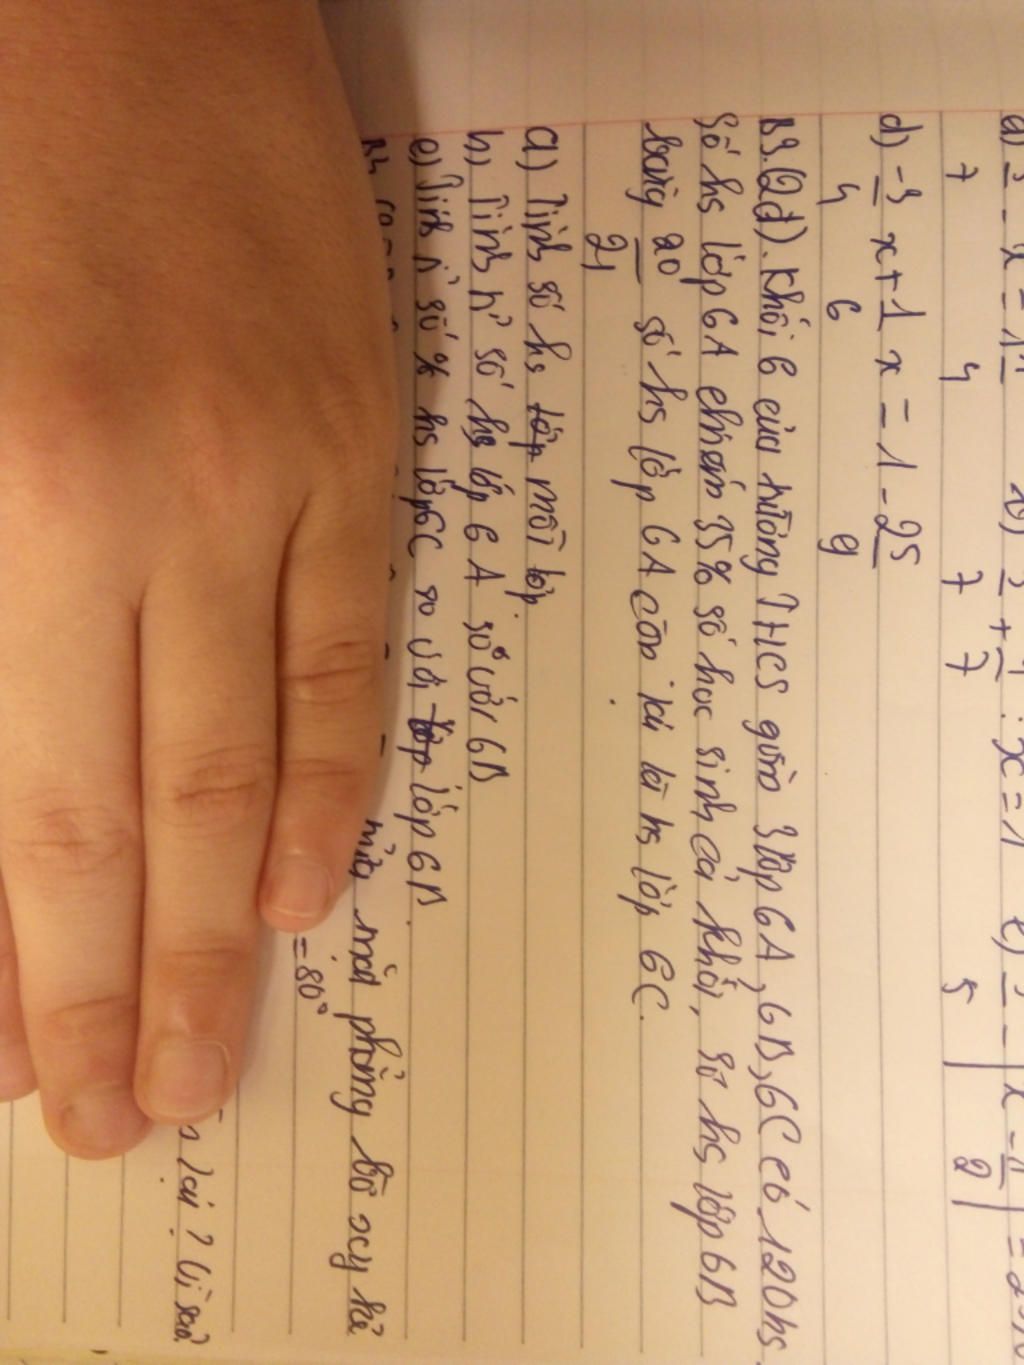 d) -3/4 x + 1/6 x = 1 - 25/9
B3. (2đ). Khối 6 của trường THCS gồm 3 lớp 6A, 6B, 6C có 120hs.
Số hs lớp 6A chiếm 35% số học sinh cả khối, số hs lớp 6B
bằng 20/21 số hs lớp 6A còn lại là hs lớp 6C.
a) Tính số hs mỗi lớp.
b) Tính tỉ số hs lớp 6A so với 6B
c) Tính tỉ số % hs lớp 6C so với lớp 6B.
mặt phẳng bờ
= 80°
lại ? Vì sao